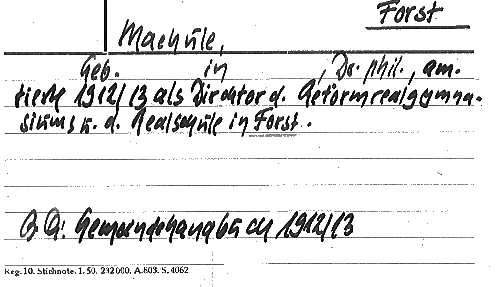 Forst
Machule,
Geb. in , Dr. phil., am-
tierte 1912/13 als Direktor d. Reformrealgymna-
siums u. d. Realschule in Forst.
B. Q: Gemeindehandbuch 1912/13
Reg. 10. Stichnote. 1. 50. 232000. A.803. S. 4062